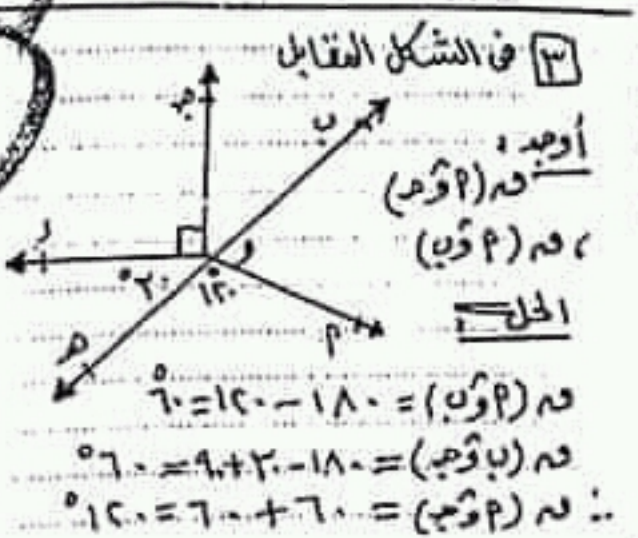 ٣ فى الشكل المقابل
أوجد :
ق (م و جـ)
، ق (م و ب)
جـ
ب
د
و
٣٠°
١٢٠°
م
هـ
الحل :
ق (م و ب) = ١٨٠ - ١٢٠ = ٦٠°
ق (ب و جـ) = ١٨٠ - ٣٠ + ٩٠ = ٦٠°
∴ ق (م و جـ) = ٦٠ + ٦٠ = ١٢٠°